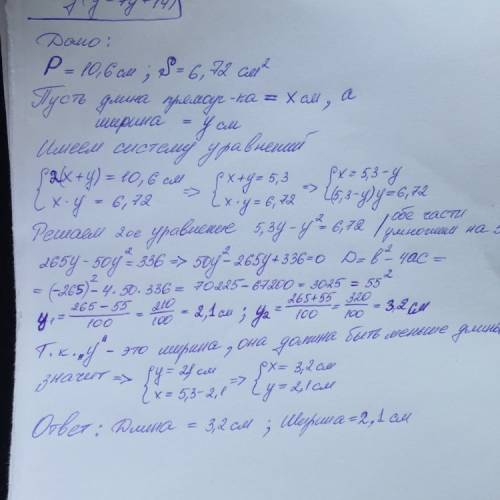 Дано:
P = 10,6 см ; S = 6,72 см²
Пусть длина прямоуг-ка = x см, а
ширина = y см
Имеем систему уравнений
{2(x+y) = 10,6 см {x · y = 6,72 => {x+y = 5,3 {x · y = 6,72 => {x = 5,3-y {(5,3-y)y = 6,72
Решаем 2ое уравнение 5,3y - y² = 6,72 | обе части умножим на
265y - 50y² = 336 => 50y² - 265y + 336 = 0 D = b² - 4ac =
= (-265)² - 4 · 50 · 336 = 70225 - 67200 = 3025 = 55²
y₁ = (265 - 55)/100 = 210/100 = 2,1 см ; y₂ = (265+55)/100 = 320/100 = 3,2 см
Т.к. „y" - это ширина, она должна быть меньше длины
значит => {y = 2,1 см {x = 5,3-2,1 => {x = 3,2 см {y = 2,1 см
Ответ: Длина = 3,2 см ; Ширина = 2,1 см